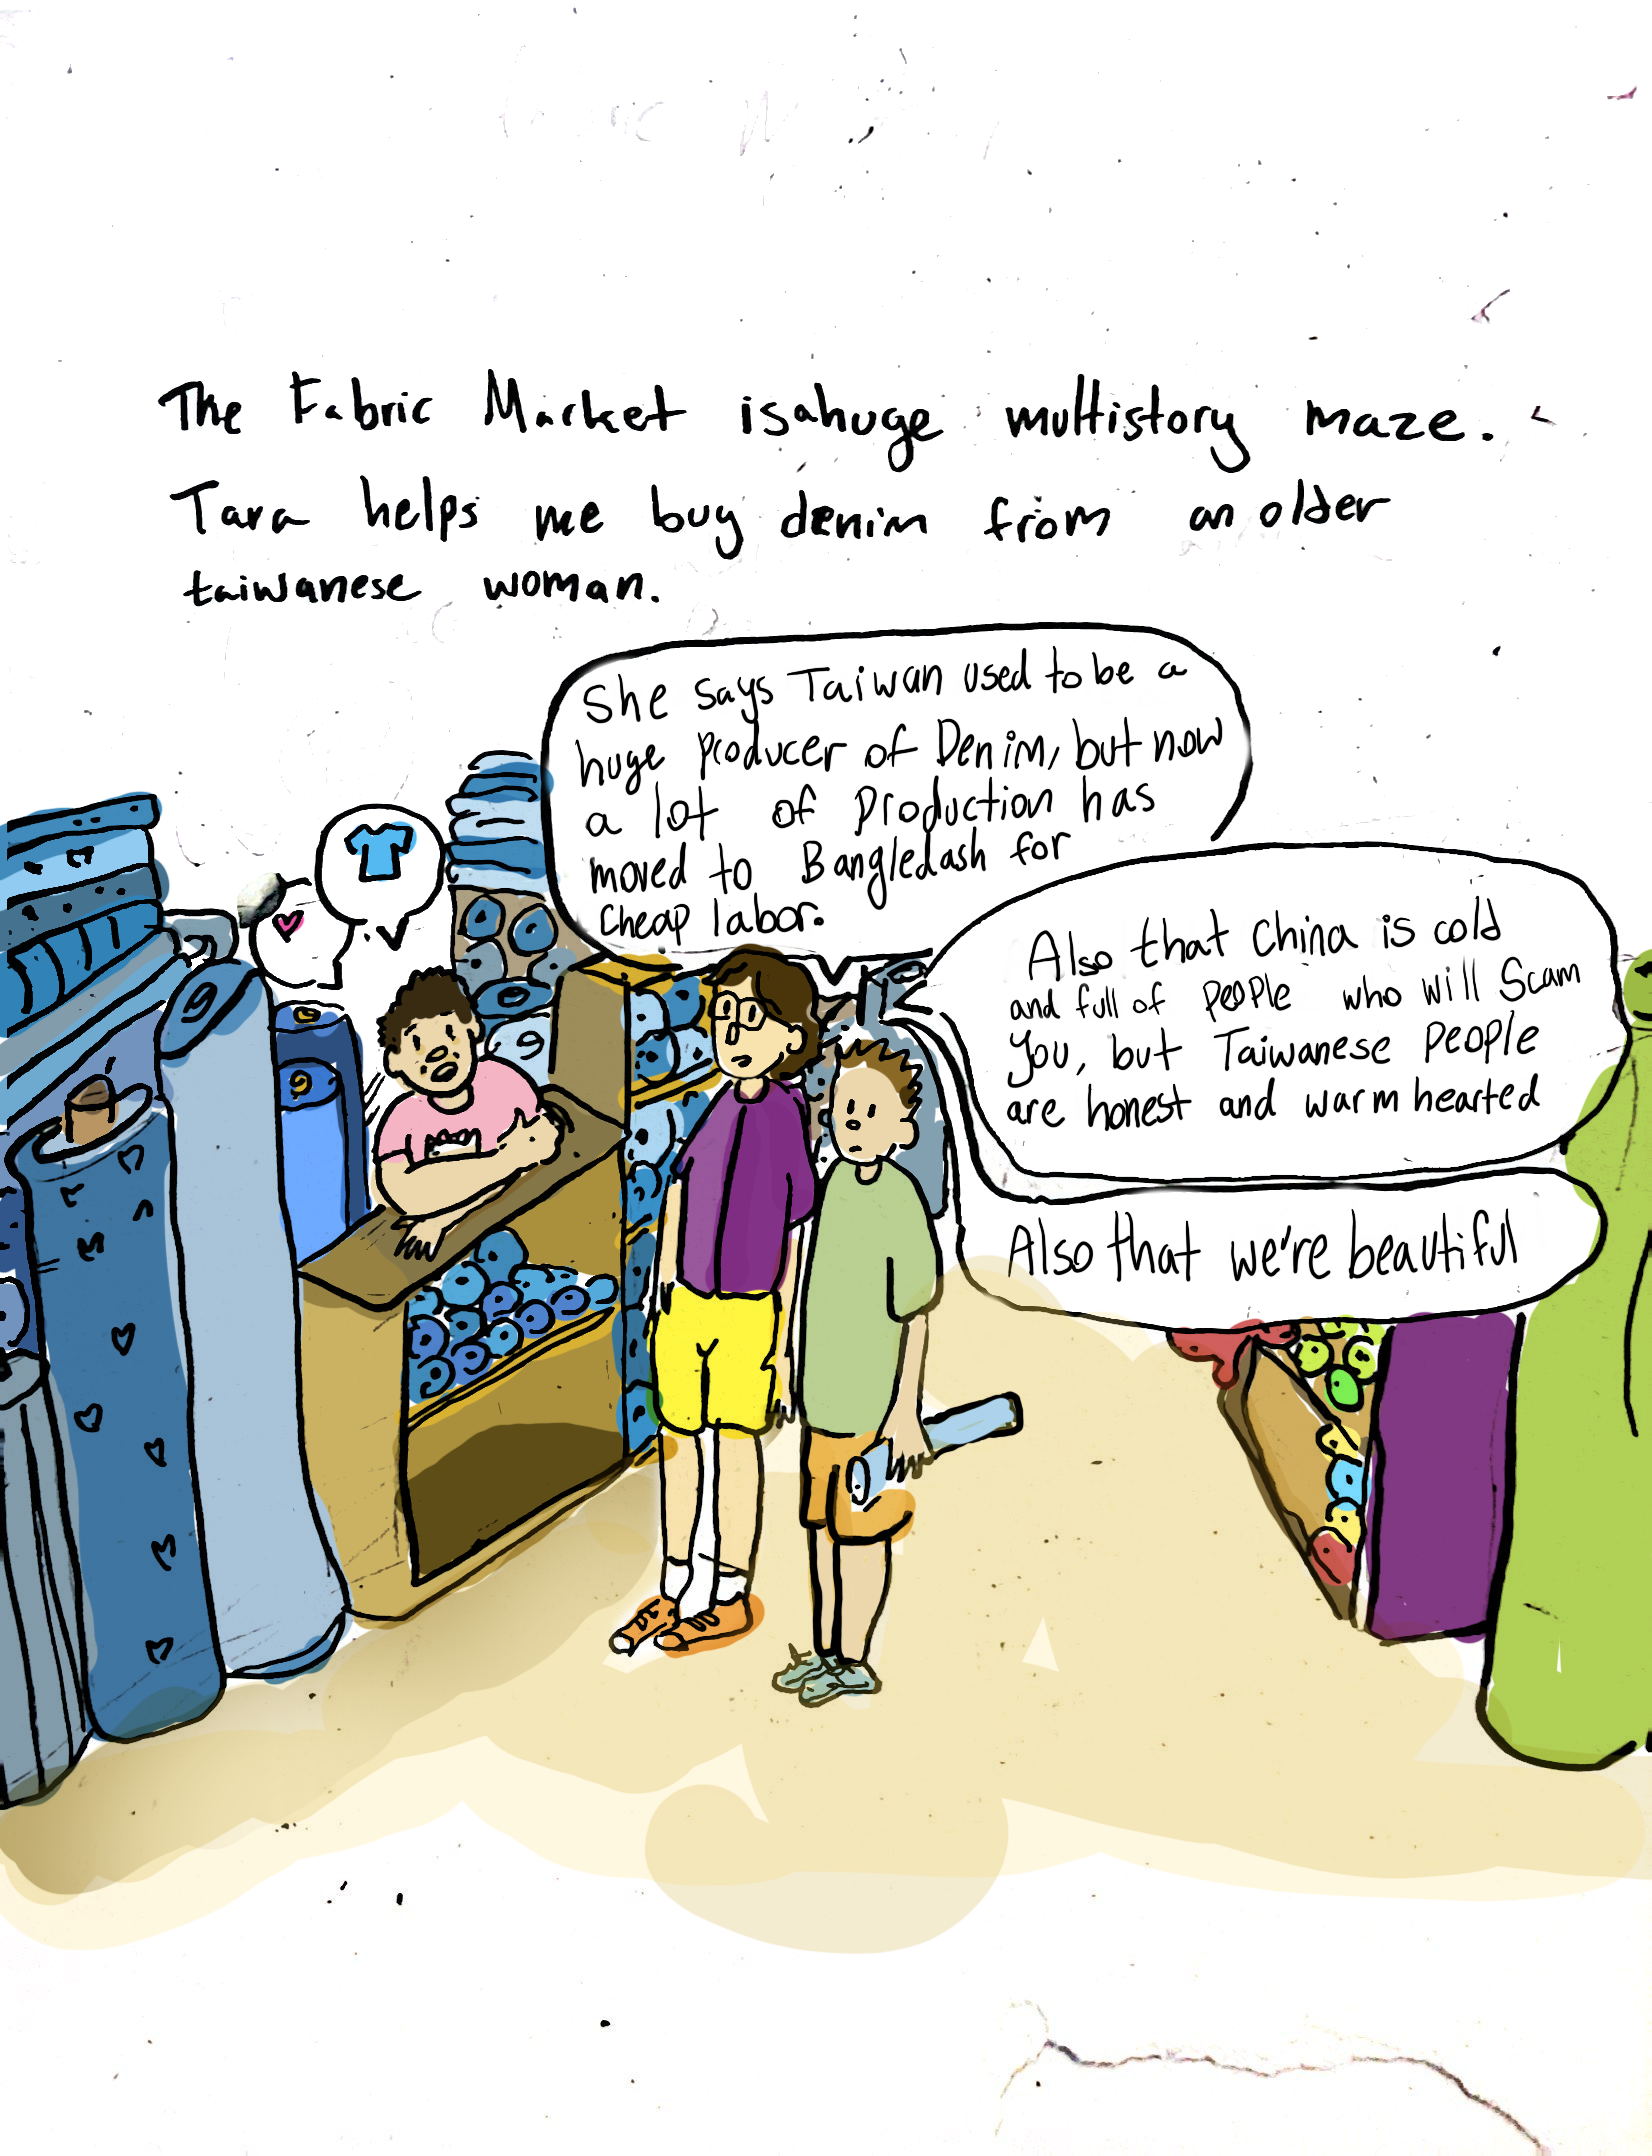 The Fabric Market is a huge multistory maze.
Tara helps me buy denim from an older
taiwanese woman.
She says Taiwan used to be a
huge producer of Denim, but now
a lot of Production has
moved to Bangledash for
cheap labor.
Also that China is cold
and full of People who will Scam
you, but Taiwanese People
are honest and warm hearted
Also that we're beautiful